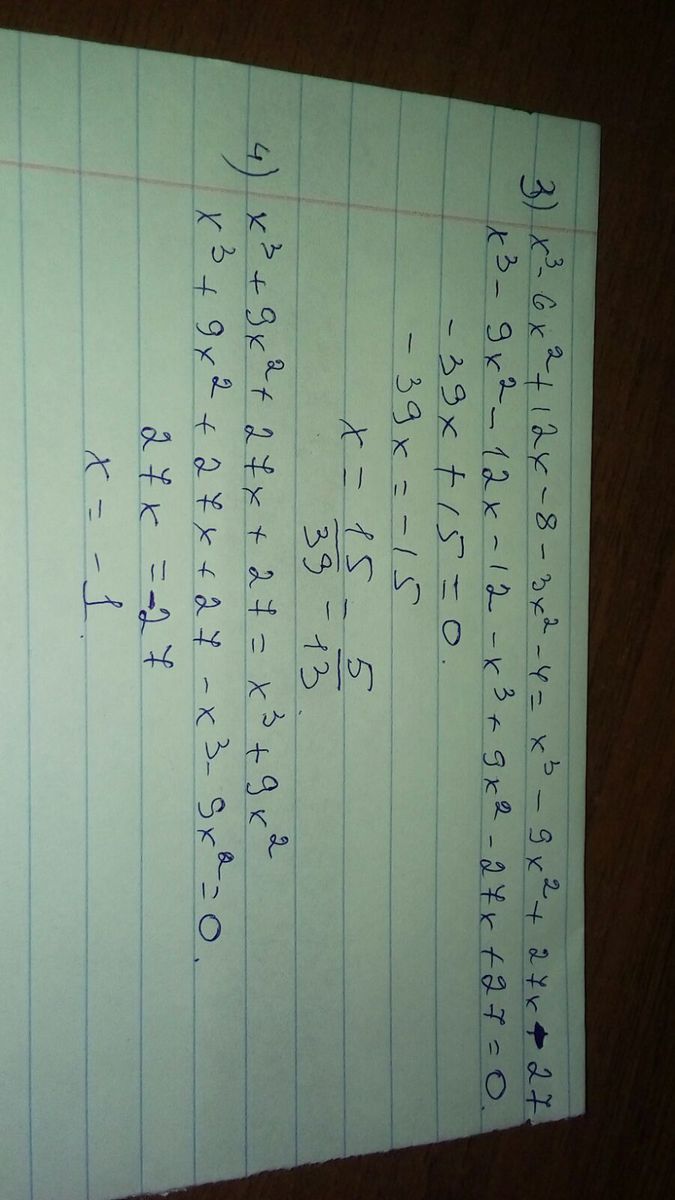 3) x³ - 6x² + 12x - 8 - 3x² - 4 = x³ - 9x² + 27x - 27
x³ - 9x² - 12x - 12 - x³ + 9x² - 27x + 27 = 0.
- 39x + 15 = 0.
- 39x = - 15
x = 15/39 = 5/13.
4) x³ + 9x² + 27x + 27 = x³ + 9x²
x³ + 9x² + 27x + 27 - x³ - 9x² = 0.
27x = -27
x = - 1.